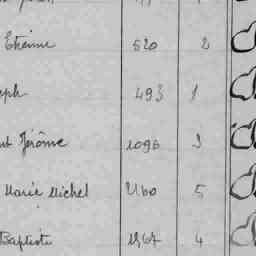 Etienne 520 2
ph 493 1
nt Jérôme 1096 3
Marie Michel 5
Baptiste 4